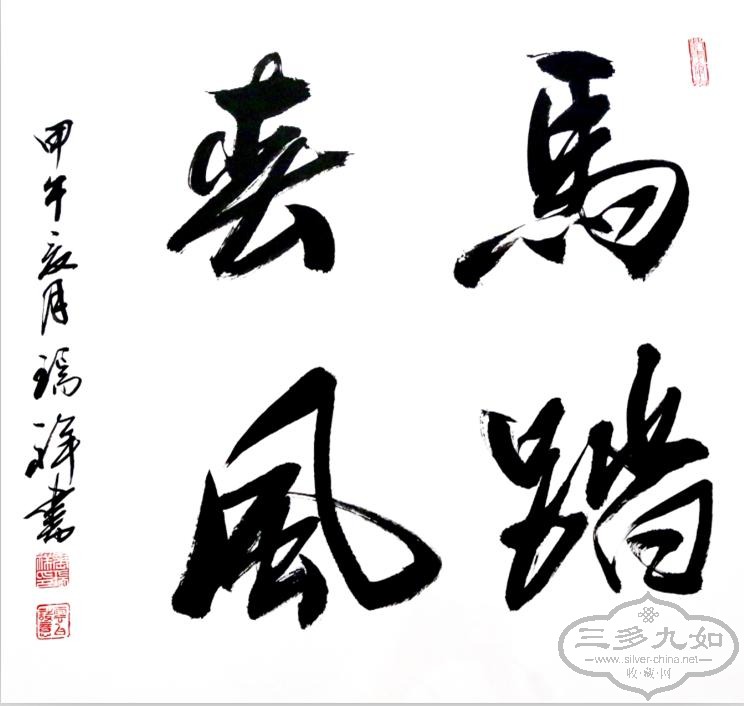 馬踏
春風
甲午夏月瑞祥書
三多九如
www.silver-china.net
收·藏·网